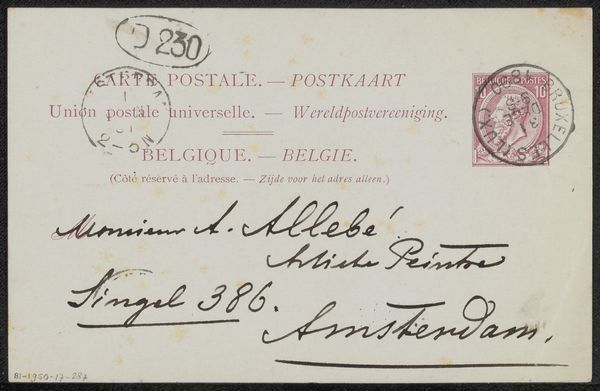 D 230
CARTE POSTALE. — POSTKAART
Union postale universelle. — Wereldpostvereeniging.
BELGIQUE. — BELGIE.
(Côté réservé à l'adresse. — Zijde voor het adres alleen.)
BELGIQUE POSTES
10
BRUXELLES
Monsieur A. Allebé
Artiste Peintre
Singel 386.
Amsterdam.
BI-1950-17-287